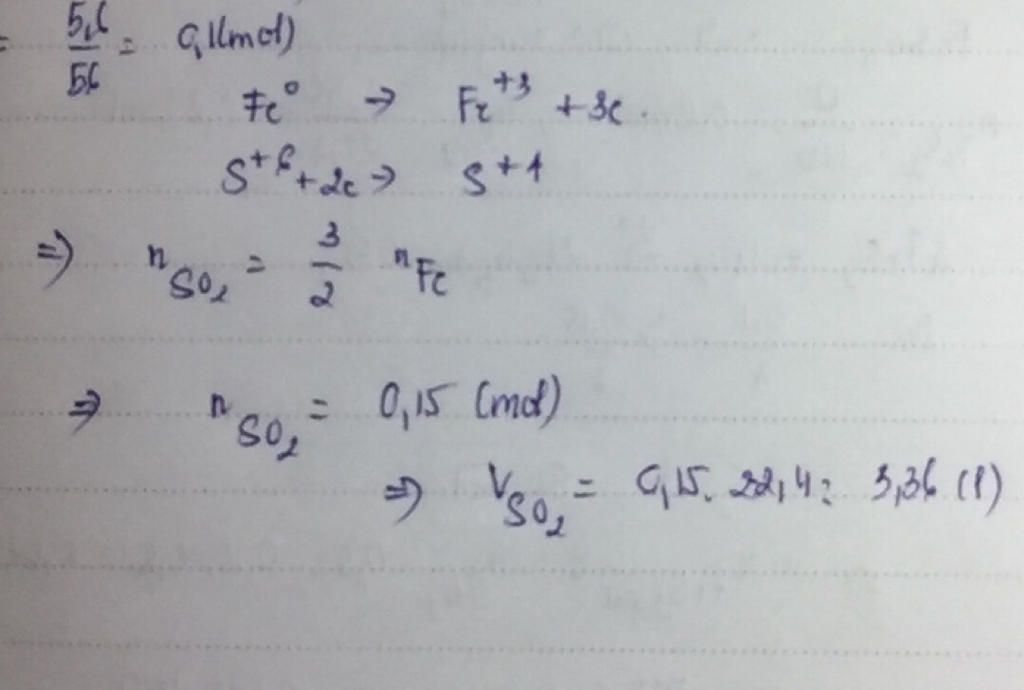 = 5,6/56 = 0,1(mol)
Fe⁰ → Fe⁺³ + 3e.
S⁺⁶ + 2e → S⁺⁴
⇒ n_SO₂ = 3/2 n_Fe
⇒ n_SO₂ = 0,15 (mol)
⇒ V_SO₂ = 0,15. 22,4 = 3,36 (l)